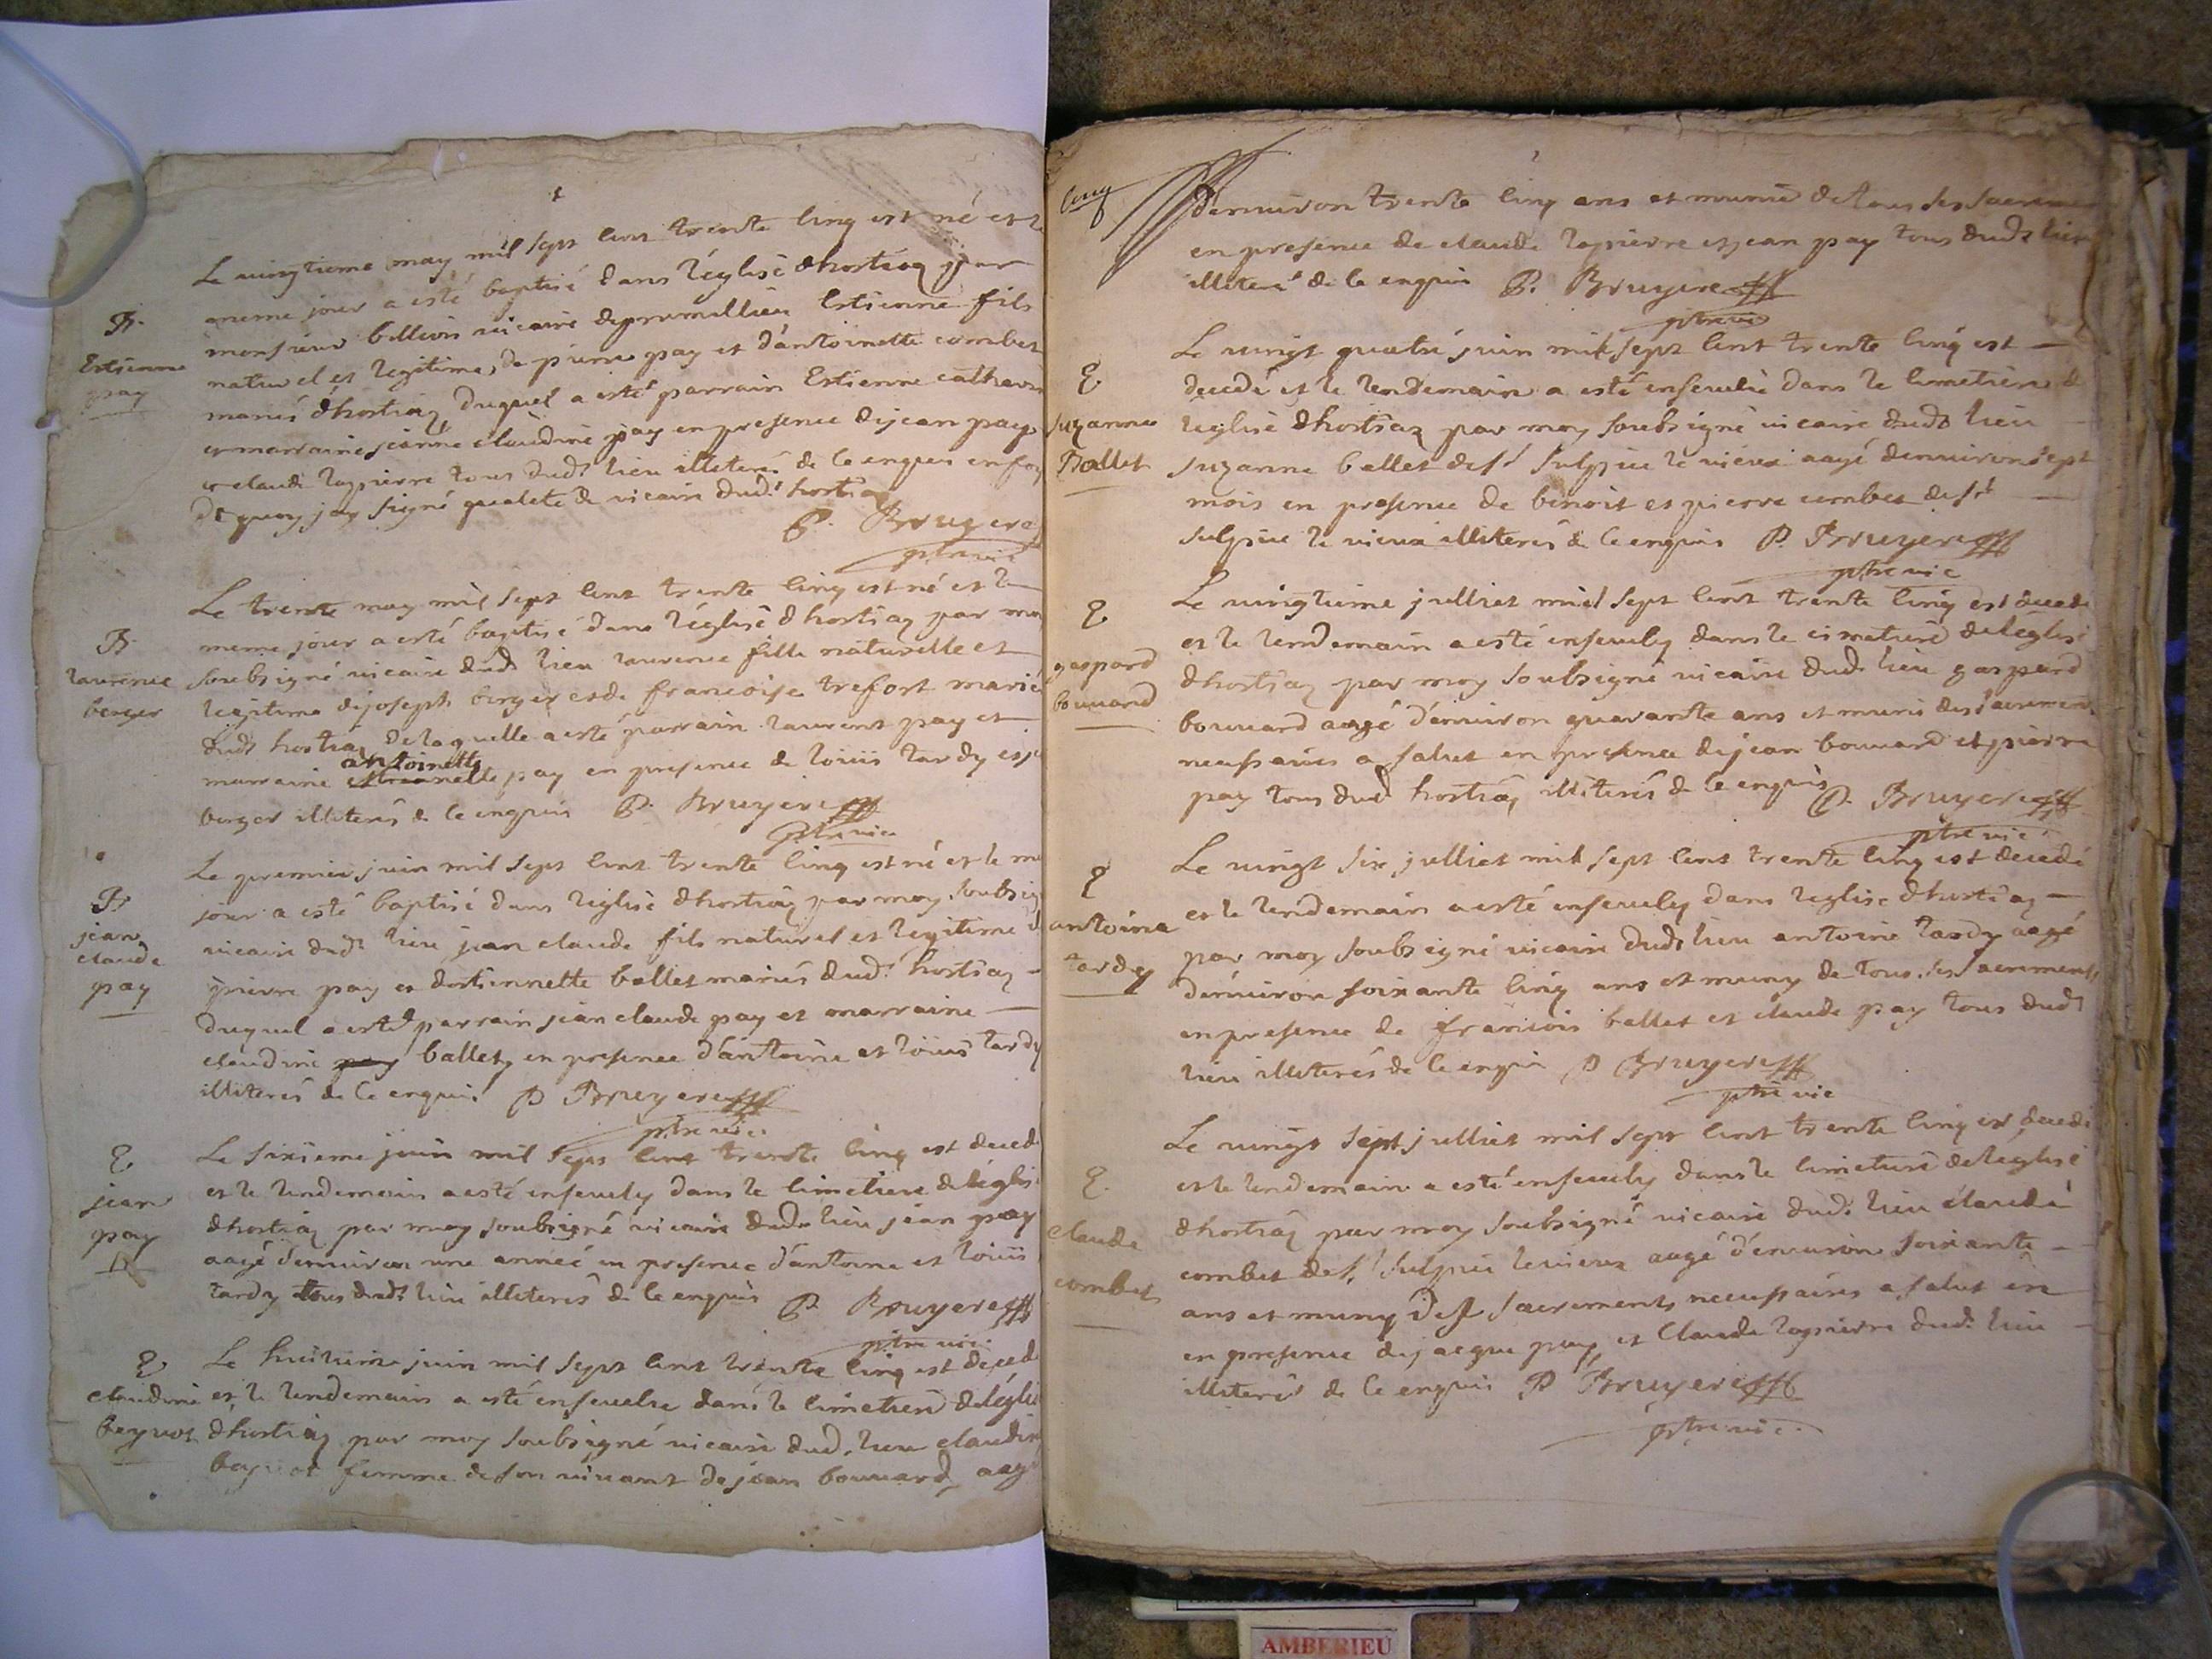 B.
Estienne
pay
Le vingtieme may mil sept cent trente cinq est né et le
meme jour a esté baptisé dans l'églisé dhostiaz par
monsieur billion vicaire deprumillieu Estienne fils
naturel et legitime, de pierre pay et d'antoinette combet
mariés dhostiaz duquel a esté parrain Estienne
et marraine jeanne claudine pay en presence dejean pay
et claude lapierre tous dudt lieu illiterés de ce enquis en foy
de quoy jay signé qualeté de vicaire dudt hostiaz
P. Bruyere
ptre vic
B.
laurence
berger
Le trente may mil sept cent trente cinq est né et le
meme jour a esté baptisé dans l'églisé dhostiaz par moy
soubsigné vicaire dudt lieu laurence fille naturelle et
legitime dejoseph berger et de francoise trefort mariés
dudt hostiaz de laquelle a esté parrain laurent pay et
antoinette
marraine pay en presence de loüis tardy et
berger illiterés de ce enquis P. Bruyere
ptre vic
B.
jean
claude
pay
Le premier juin mil sept cent trente cinq est né et le me
jour a esté baptisé dans leglisé dhostiaz par moy soubsig
vicaire dudt lieu jean claude fils naturel et legitime d
pierre pay et destiennette ballet mariés dudt hostiaz
duquel a esté parrain jean claude pay et marraine
claudine pay ballet, en presence d'antoine et loüis tardy
illiterés de ce enquis P Bruyere
ptre vic
E.
jean
pay
Le sixieme juin mil sept cent trente cinq est decedé
et le lendemain a esté ensevely dans le cimetiere de léglisé
dhostiaz par moy soubsigné vicaire dudt lieu jean pay
aagé denviron une anneé en presence d'antoine et loüis
tardy tous dudt lieu illiterés de ce enquis P. Bruyere
ptre vic
E.
claudine
beynot
Le huitieme juin mil sept cent trente cinq est decedé
et le lendemain a esté ensevelie dans le cimetiere de léglisé
dhostiaz par moy soubsigné vicaire dud. lieu claudine
femme deson vivant de jean bouvard, aagé
cinq
denviron trente cinq ans et munie de tous ses sacremen
en presence de claude lapierre et jean pay tous dudt lieu
illiteré de ce enquis P. Bruyere
ptre vic
E
suzanne
Ballet
Le vingt quatre juin mil sept cent trente cinq est
decedé et le lendemain a esté ensevelie dans le cimetiere de
leglisé dhostiaz par moy soubsigné vicaire dudt lieu
suzanne ballet de st sulpice le vieux aagé denviron sept
mois en presence de benoit et pierre combet de st
sulpice le vieux illiterés de ce enquis P. Bruyere
ptre vic
E
gaspard
bouvard
Le vingtieme julliet mil sept cent trente cinq est decedé
et le lendemain a esté ensevely dans le cimetiere deleglisé
dhostiaz par moy soubsigné vicaire dudt lieu gaspard
bouvard aagé d'environ quarante ans et muni des sacrements
necessaires a salut en presence dejean bouvard et pierre
pay tous dudt hostiaz illiterés de ce enquis P. Bruyere
ptre vic
E
antoine
tardy
Le vingt six julliet mil sept cent trente cinq est decedé
et le lendemain a esté ensevely dans leglise dhostiaz
par moy soubsigné vicaire dudt lieu antoine tardy aagé
denviron soixante cinq ans et muny de tous ses sacrements
en presence de francois ballet et claude pay tous dudt
lieu illiterés de ce enquis P Bruyere
ptre vic
E.
claude
combet
Le vingt sept julliet mil sept cent trente cinq est decedé
et le lendemain a esté ensevely dans le cimetiere deleglisé
dhostiaz par moy soubsigné vicaire dudt lieu claude
combet de st sulpice levieux aagé d'environ soixante
ans et muny des sacrements necessaires a salut en
en presence dejacque pay, et Claude lapierre dudt lieu
illiterés de ce enquis P Bruyere
ptre vic.
AMBERIEU